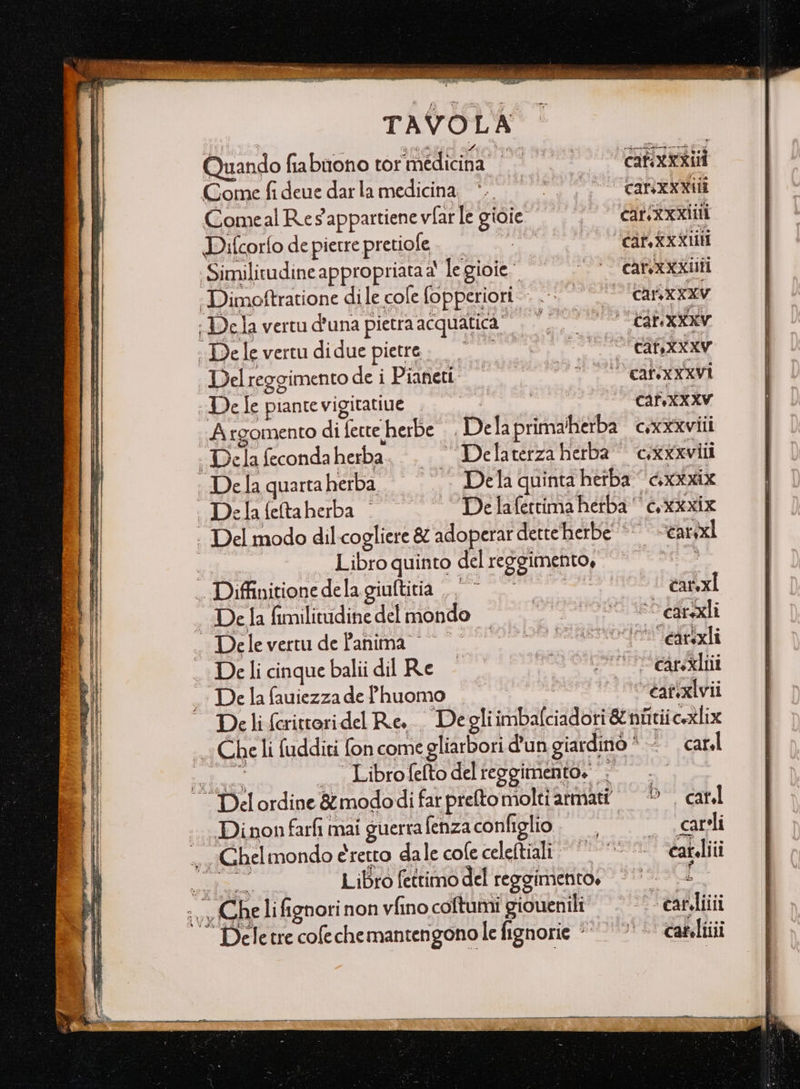 TAVOLA
Quando ſia buono tor medicina car.xxxiii
Come ſi deue dar la medicina car.xxxiii
Come al Re s'appartiene vſar le gioie car.xxxiiii
Diſcorſo de pietre pretioſe car.xxxiiii
Similitudine appropriata a' le gioie car.xxxiiii
Dimoſtratione di le coſe ſopperiori car.xxxv
De la vertu d'una pietra acquatica car.xxxv
De le vertu di due pietre car.xxxv
Del reggimento de i Pianeti car.xxxvi
De le piante vigitatiue car.xxxv
Argomento di ſette herbe De la prima herba c.xxxviii
De la ſeconda herba De la terza herba c.xxxviii
De la quarta herba De la quinta herba c.xxxix
De la ſeſta herba De la ſettima herba c.xxxix
Del modo dil cogliere & adoperar dette herbe car.xl
Libro quinto del reggimento,
Diffinitione de la giuſtitia car.xl
De la ſimilitudine del mondo car.xli
De le vertu de l'anima car.xli
De li cinque balii dil Re car.xliii
De la ſauiezza de l'huomo car.xlvii
De li ſcrittori del Re. De gli imbaſciadori & nūtii c.xlix
Che li ſudditi ſon come gli arbori d'un giardino car.l
Libro ſeſto del reggimento.
Del ordine & modo di far preſto molti armati car.l
Di non farſi mai guerra ſenza conſiglio car.li
Chel mondo e'retto da le coſe celeſtiali car.liii
Libro ſettimo del reggimento.
Che li ſignori non vſino coſtumi giouenili car.liiii
De le tre coſe che mantengono le ſignorie car.liiii